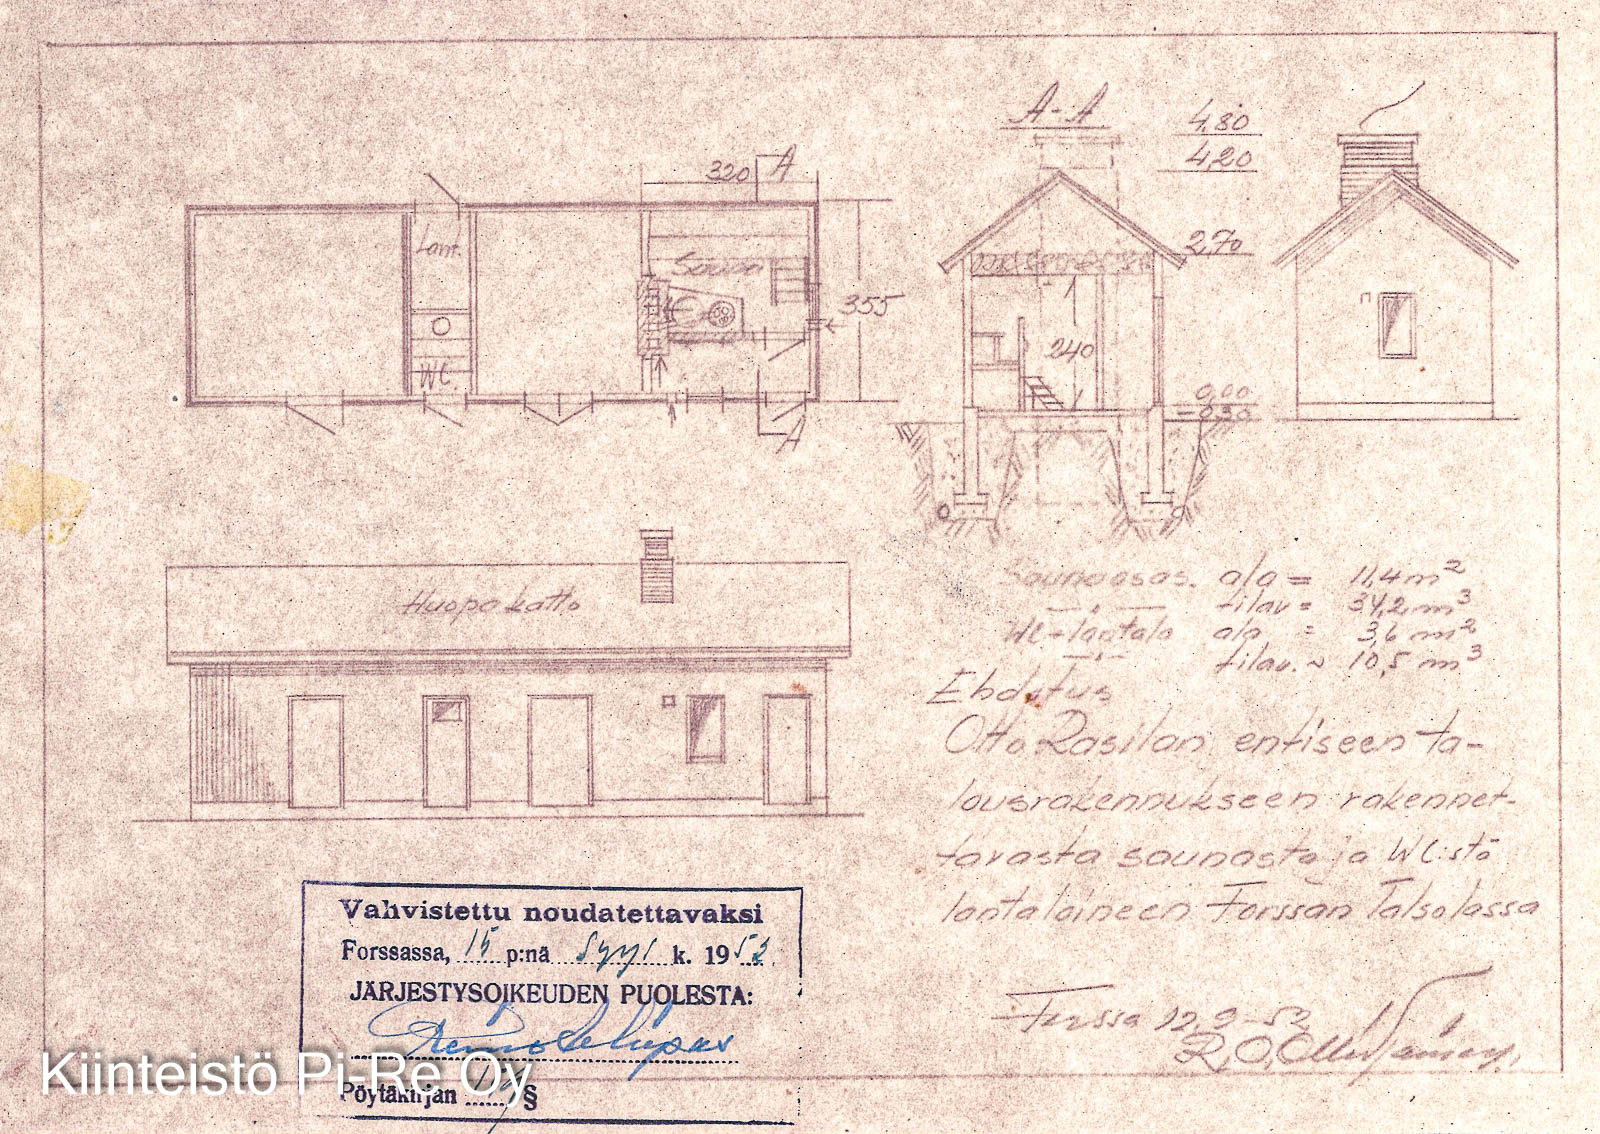 A-A
4,80
4,20
320 A
Lant.
Sauna
2,70
355
240
WC.
0,00
-0,30
A
Huopakatto
Saunaosas. ala = 11,4 m²
tilav = 34,2 m³
WC-lantala ala = 3,6 m²
tilav. ~ 10,5 m³
Ehdotus
Otto Rasilan entiseen ta-
lousrakennukseen rakennet-
tavasta saunasta ja WC:stä
lantaloineen Forssan Talsolassa
Forssa 12.9-52
R.O.
Vahvistettu noudatettavaksi
Forssassa, 15 p:nä syys k. 1952
JÄRJESTYSOIKEUDEN PUOLESTA:
Pöytäkirjan §
Kiinteistö Pi-Re Oy